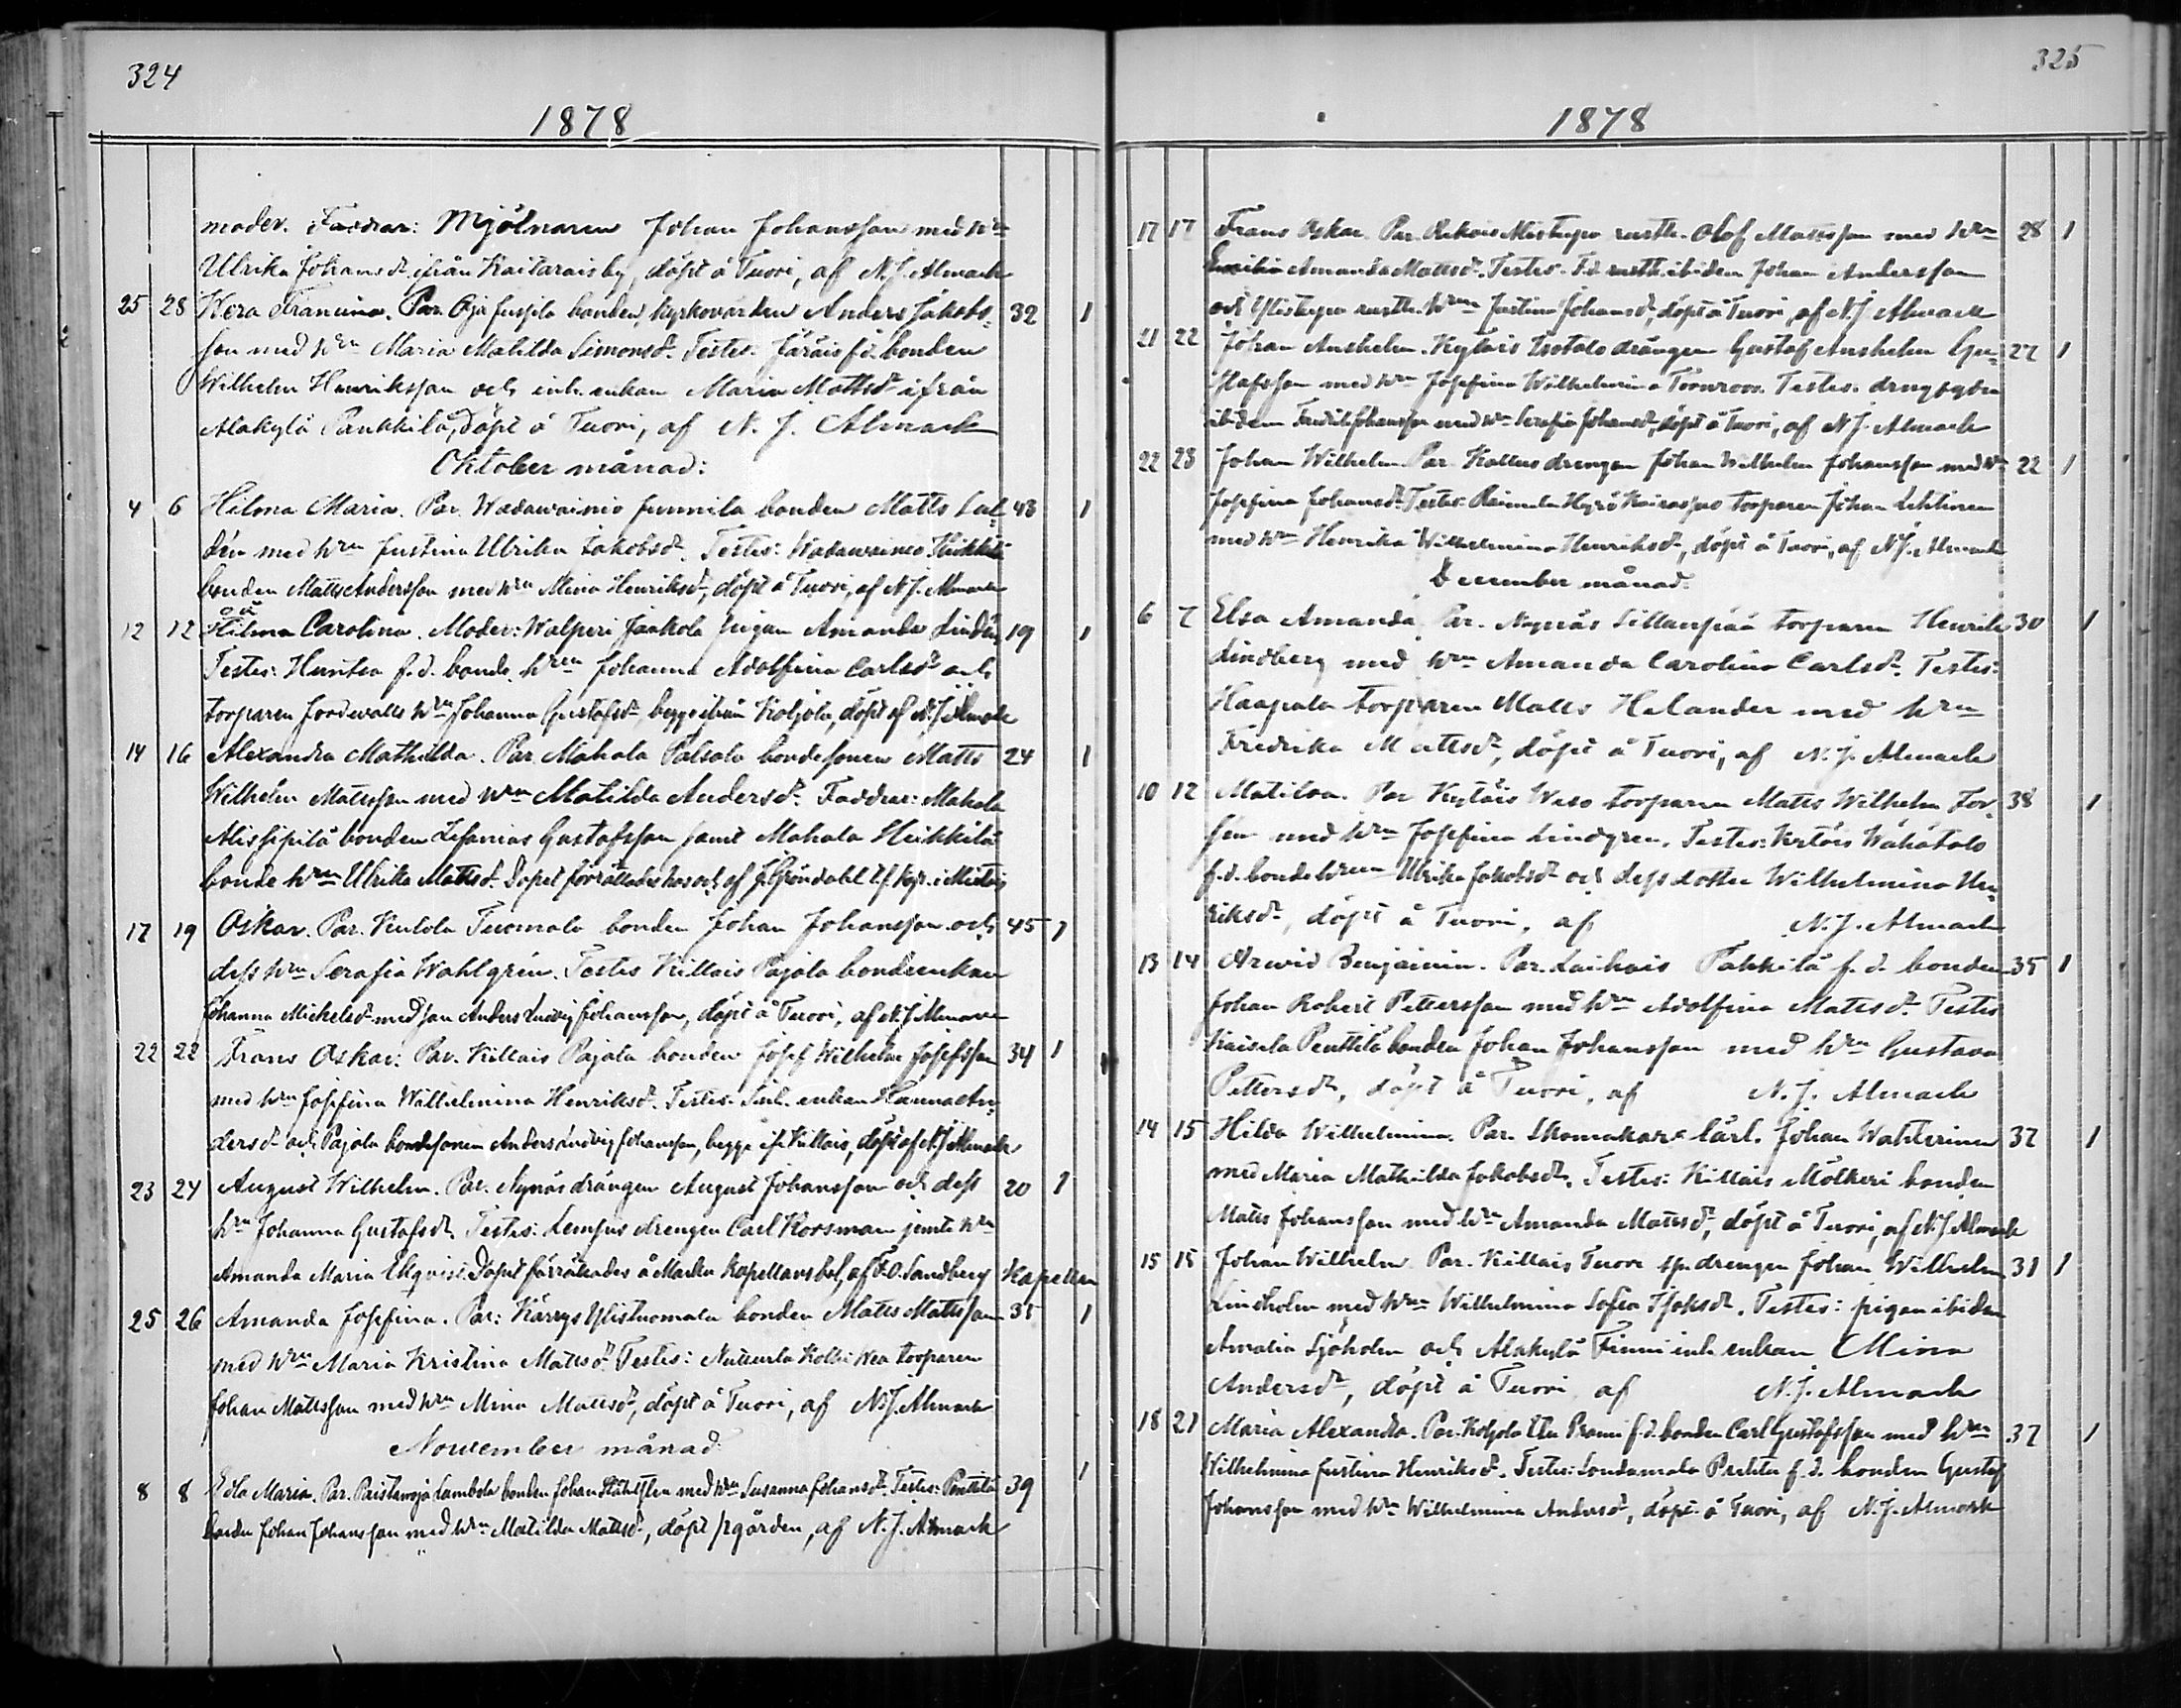 324
1878
moder. Faddrar: Mjölnaren Johan Johansson med hrn
Ulrika Johansdr ifrån Kaitarais by, döpt å Tuori, af N. J. Almark
25 28 Wera Francina. Par. Oja Jussila bonden, kyrkovärden Anders Jakobs- 32 1
son med hrn Maria Matilda Simonsdr. Testes: Järäis f.d. bonden
Wilhelm Henriksson och inh. enkan Maria Mattsdr ifrån
Alakylä Pänkkilä, döpt å Tuori, af N. J. Almark
Oktober månad:
4 6 Hilma Maria. Par. Wadawainio Junnila bonden Matts 43 1
med hrn Justina Ulrika Jakobsdr. Testes: Wadawainio Heikkilä
bonden Matts Andersson med hrn Mina Henriksdr, döpt å Tuori, af N. J. Almark
12 12 oä Hilma Carolina. Moder: Walperi Jaakola pigan Amanda Lindén, 19 1
Testes: Huntea f.d. bonde hrn Johanna Adolfina Carlsdr och
torparen Jordwalls hrn Johanna Gustafsdr, begge ifrån Koljola, döpt af N. J. Almark
14 16 Alexandra Mathilda. Par. Mahala Palsala bondesonen Matts 24 1
Wilhelm Mattsson med hrn Matilda Andersdr. Faddrar: Mahala
Missipilä bonden Zefanias Gustafsson samt Mahala Heikkilä
bonde hrn Ulrika Mattsdr. Dopet förrättades hos och af J. Gröndahl
17 19 Oskar. Par. Kulola Tuomola bonden Johan Johansson och 45 1
dess hrn Serafia Wahlgrén. Testes Killais Pajala bondeenkan
Johanna Michelsdr med son Anders Ludvig Johansson, döpt å Tuori, af N. J. Almark
22 22 Frans Oskar. Par. Killais Pajala bonden Josef Wilhelm Josefsson 34 1
med hrn Josefina Wilhelmina Henriksdr. Testes: Inh. enkan Hanna An-
dersdr och Pajala bondesonen Anders Ludvig Johansson, begge ifr. Killais, döpt af N. J. Almark
23 24 August Wilhelm. Par. Nynäs drängen August Johansson och dess 20 1
hrn Johanna Gustafsdr. Testes: Lempus drengen Carl Korsman jemte hrn
Amanda Maria Ekqvist. Dopet förrättades å Masku Kapellansbol, af F. O. Sandberg Kapellan
25 26 Amanda Josefina. Par: Kärrys Ylistuomala bonden Matts Mattsson 35 1
med hrn Maria Kristina Mattsdr. Testes: Nuuurla torparen
Johan Mattsson med hrn Mina Mattsdr, döpt å Tuori, af N. J. Almark
November månad
8 8 Edla Maria. Par. Paistanoja Lambola bonden Johan med hrn Susanna Johansdr. Testes: Penttilä 39 1
bonden Johan Johansson med hrn Matilda Mattsdr, döpt prgården, af N. J. Almark
325
1878
17 17 Frans Oskar. Par. rusth. Olof Mattsson med hrn 28 1
Emilia Amanda Mattsdr. Testes. F.d. rusth. ibiden Johan Andersson
och Ylistupa rusth. hrn Justina Johansdr, döpt å Tuori, af N. J. Almark
21 22 Johan Anshelm. Kytöis Isotalo drängen Gustaf Anshelm Gu- 27 1
stafsson med hrn Josefina Wilhelmina Törnroos. Testes.
ibidem Fredrik Johansson med hrn Serafia Johansdr, döpt å Tuori, af N. J. Almark
22 23 Johan Wilhelm. Par. Kallus drengen Johan Wilhelm Johansson med hrn 22 1
Josefina Johansdr. Testes: Raimela Hyrö torparen Johan Lehtinen
med hrn Henrika Wilhelmina Henriksdr, döpt å Tuori, af N. J. Almark
December månad.
6 7 Elsa Amanda. Par. Nynäs Sillanpää torparen Henrik 30 1
Lindberg med hrn Amanda Carolina Carlsdr. Testes:
Haapala torparen Matts Helander med hrn
Fredrika Mattsdr, döpt å Tuori, af N. J. Almark
10 12 Matilda. Par Kytöis Weso torparen Matts Wilhelm For- 38 1
sén med hrn Josefina Lindgren. Testes: Kytöis Wähätalo
f.d. bonde hrn Ulrika Jakobsdr och dess dotter Wilhelmina Hen-
riksdr, döpt å Tuori, af N. J. Almark
13 14 Arwid Benjamin. Par. Laihois Pakkilä f.d. bonden 35 1
Johan Robert Pettersson med hrn Adolfina Mattsdr. Testes
Kaisela Penttilä bonden Johan Johansson med hrn Gustava
Pettersdr, döpt å Tuori, af N. J. Almark
14 15 Hilda Wilhelmina. Par. Skomakare lärl. Johan Wahterinen 37 1
med Maria Mathilda Jakobsdr. Testes: Killais Mölkeri bonden
Matts Johansson med hrn Amanda Mattsdr, döpt å Tuori, af N. J. Almark
15 15 Johan Wilhelm. Par. Killais Tuori sp. drengen Johan Wilhelm 31 1
Lindholm med hrn Wilhelmina Sofia Isaksdr. Testes: pigan ibiden
Amalia Sjöholm och Alakylä Finni inh. enkan Mina
Andersdr, döpt å Tuori af N. J. Almark
18 21 Maria Alexandra. Par. Koljola Prami f.d. bonden Carl Gustafsson med hrn 37 1
Wilhelmina Justina Henriksdr. Testes: f.d. bonden Gustaf
Johansson med hrn Wilhelmina Andersdr, döpt å Tuori, af N. J. Almark